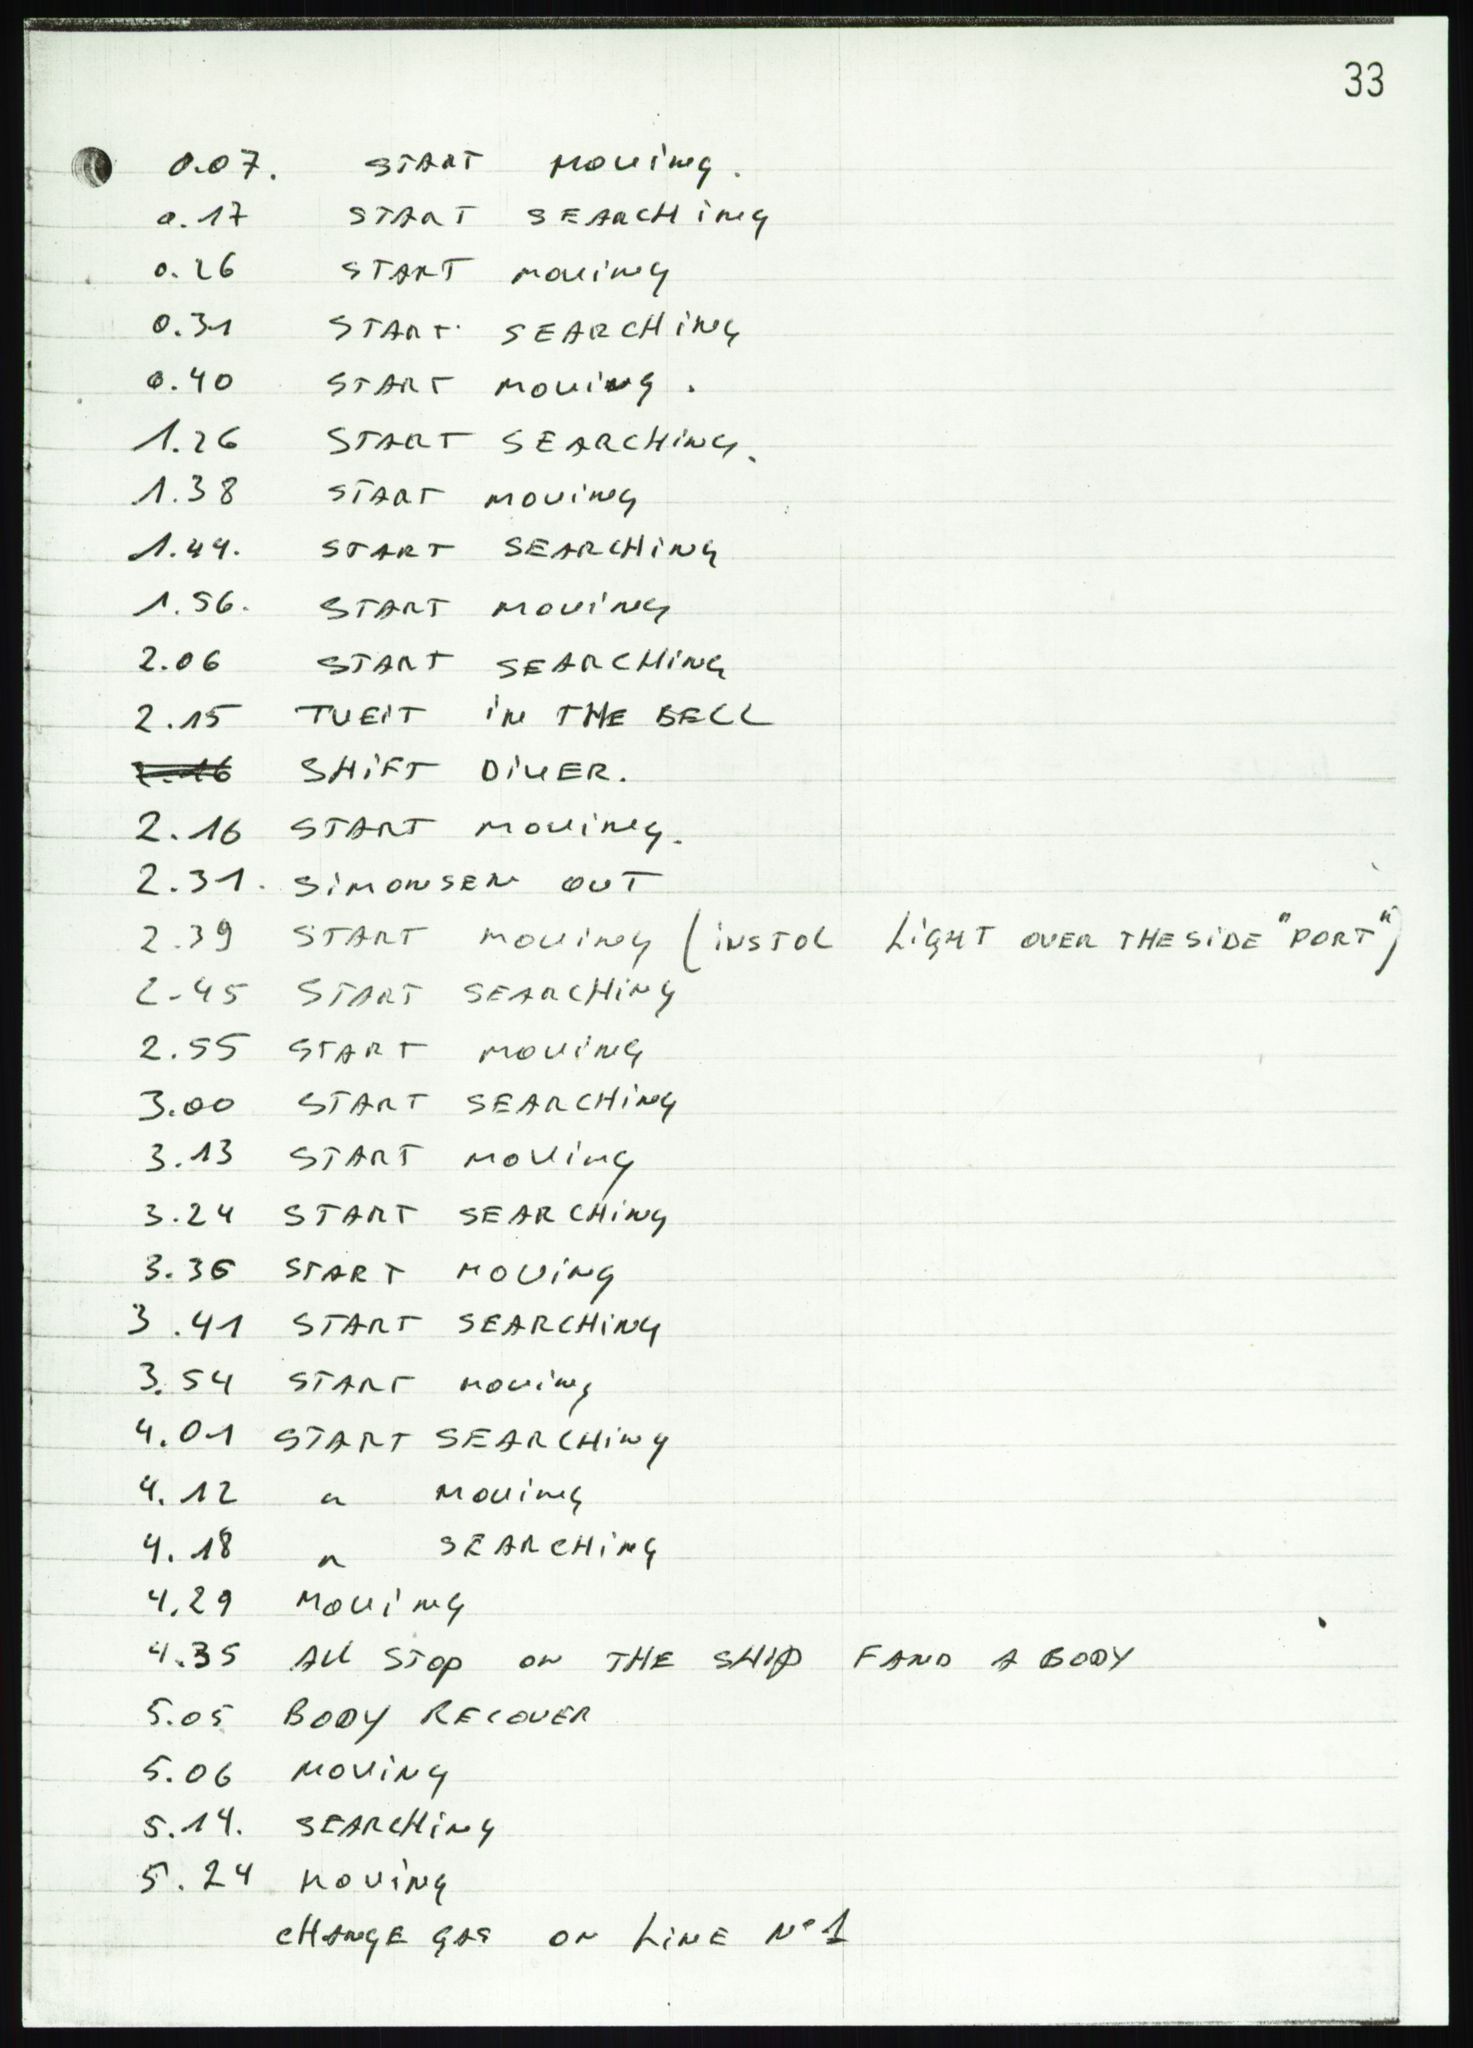 33
0.07. START MOVING.
0.17 START SEARCHING
0.26 START MOVING
0.31 START SEARCHING
0.40 START MOVING.
1.26 START SEARCHING.
1.38 START MOVING
1.44. START SEARCHING
1.56. START MOVING
2.06 START SEARCHING
2.15 TVEIT IN THE BELL
2.16 SHIFT DIVER.
2.16 START MOVING.
2.31. SIMONSEN OUT
2.39 START MOVING (INSTOL LIGHT OVER THE SIDE "PORT")
2.45 START SEARCHING
2.55 START MOVING
3.00 START SEARCHING
3.13 START MOVING
3.24 START SEARCHING
3.36 START MOVING
3.41 START SEARCHING
3.54 START MOVING
4.01 START SEARCHING
4.12 " MOVING
4.18 " SEARCHING
4.29 MOVING
4.35 All STOP ON THE SHIP FAND A BODY
5.05 BODY RECOVER
5.06 MOVING
5.14. SEARCHING
5.24 MOVING
CHANGE GAS ON LINE Nº1